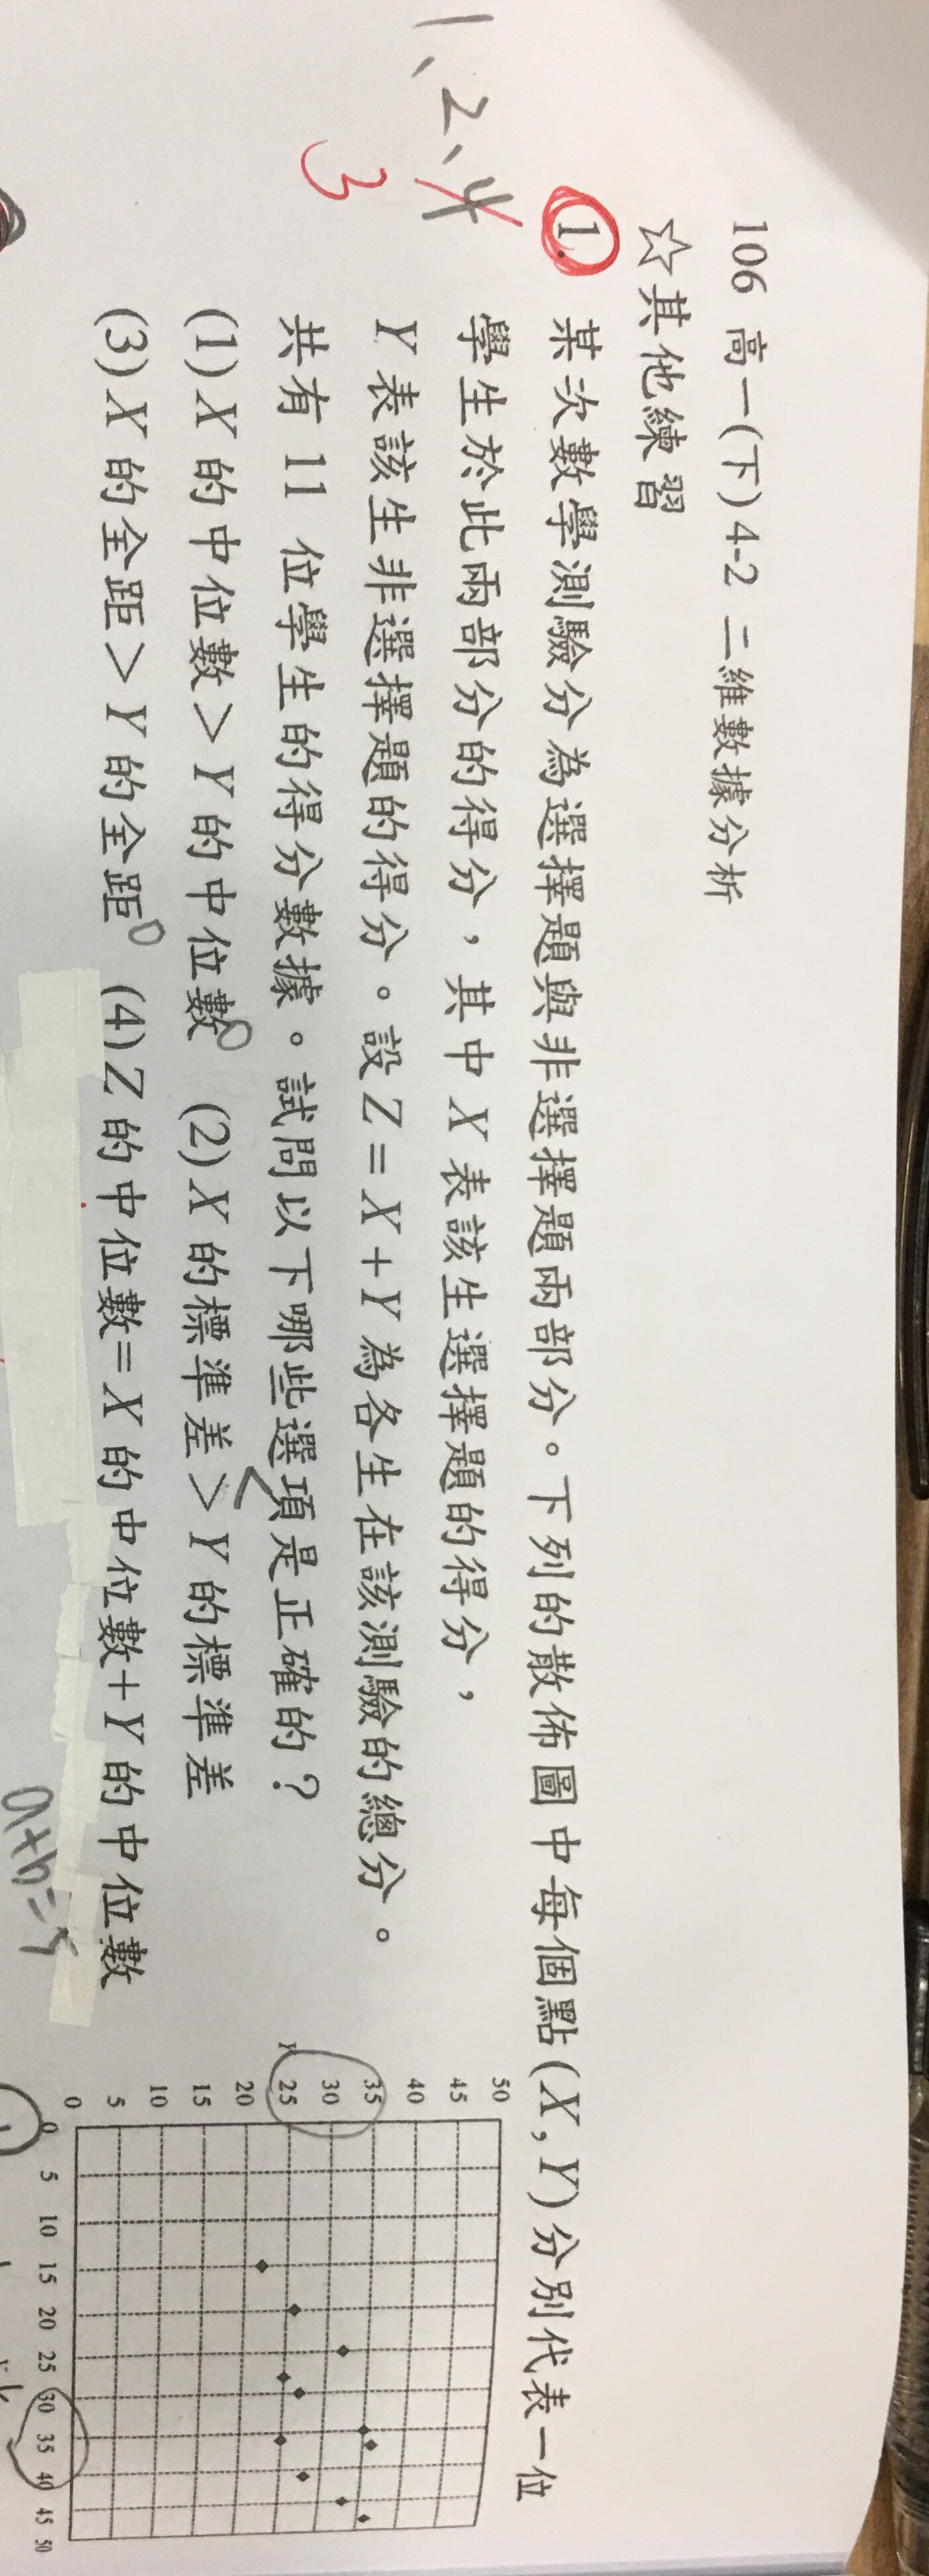 106 高一(下)4-2 二維數據分析
☆其他練習
1. 某次數學測驗分為選擇題與非選擇題兩部分。下列的散佈圖中每個點(X, Y)分別代表一位
學生於此兩部分的得分，其中 X 表該生選擇題的得分，
Y 表該生非選擇題的得分。設 Z=X+Y 為各生在該測驗的總分。
共有 11 位學生的得分數據。試問以下哪些選項是正確的？
(1) X 的中位數>Y 的中位數 (2) X 的標準差>Y 的標準差
(3) X 的全距>Y 的全距 (4) Z 的中位數=X 的中位數+Y 的中位數
1、2、4
3
<
a+b=
50
45
40
35
30
25
20
15
10
5
0
0 5 10 15 20 25 30 35 40 45 50